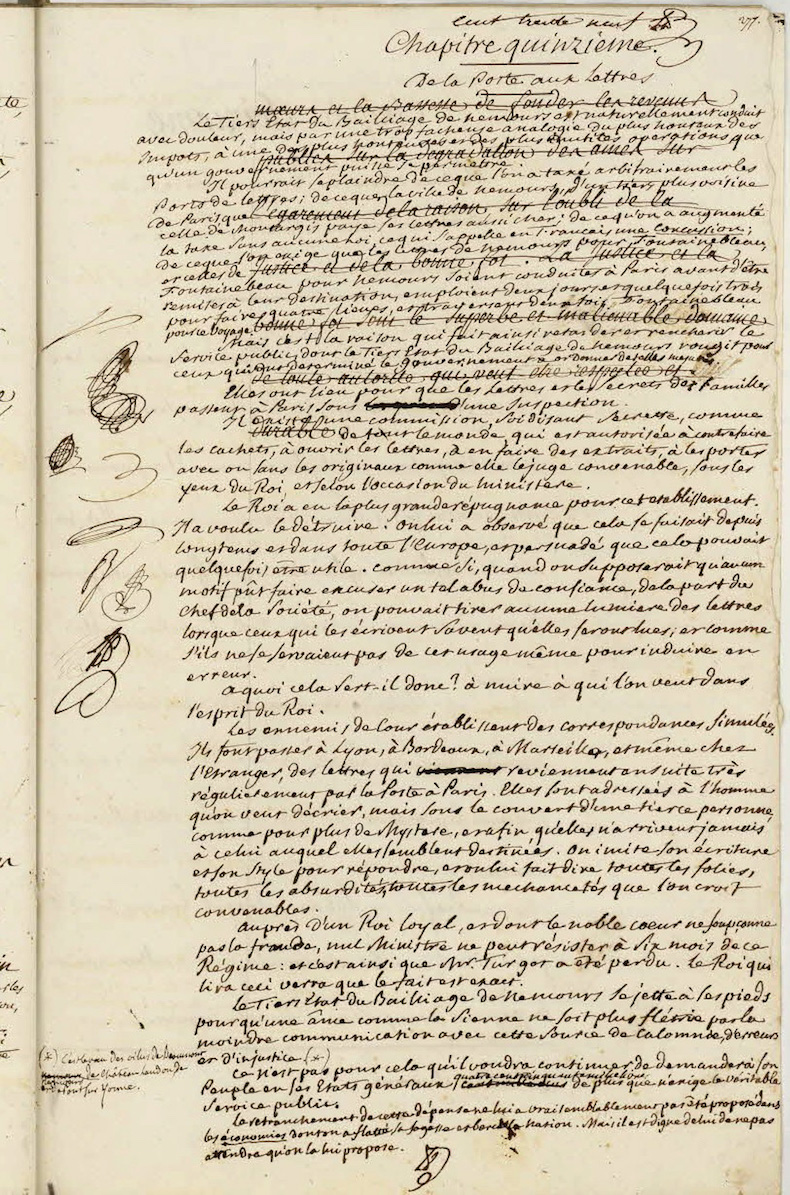 cent trente neuf
377.
Chapitre quinzieme.
De la Poste aux Lettres
mœurs et la Bassesse de fonder les revenus
Le Tiers Etat du Bailliage de nemours est naturellement conduit
avec douleur, mais par une trop facheuse analogie du plus honteux des
Impots, à une des plus honteuses et des plus inutiles opérations que
publics sur la dégradation des ames sur
qu'un gouvernement puisse se permettre.
Il pourrait se plaindre de ce que l'on a taxé arbitrairement les
Ports de lettres; de ce que la ville de nemours, d'un tiers plus voisine
de Paris que l'égarement de la raison, sur l'oubli de la
celle de Montargis paye ses lettres aussi cher; de ce qu'on a augmenté
la taxe sans aucune loi, ce qui s'appelle en Francais une concussion;
de ce que l'on exige que les lettres de nemours pour Fontainebleau,
et celles de justice et de la bonne foi. La justice et la
Fontainebleau pour nemours soient conduites à Paris avant d'être
remises à leur destination, emploient deux jours et quelquefois trois
pour faire quatre lieues, et traversent deux fois Fontainebleau
pour ce voyage. bonne foi sont le superbe et inaliénable domaine
Mais c'est la raison qui fait ainsi retarder et rencherir le
Service public, dont le Tiers Etat du Bailliage de nemours rougit pour
ceux qui ont determiné le gouvernement à ordonner de telles mesures.
de toute autorité qui veut être respectée et
Elles ont lieu pour que les Lettres et les secrets des Familles
passent à Paris sous d'une Inspection.
Il existe une commission, soi disant secrette, comme
durable de tout le monde qui est autorisée à contrefaire
les cachets, à ouvrir les lettres, à en faire des extraits, à les porter
avec ou sans les originaux comme elle le juge convenable, sous les
yeux du Roi et selon l'occasion du ministère.
Le Roi a eu la plus grande répugnance pour cet etablissement.
Il a voulu le détruire. on lui a observé que cela se faisait depuis
longtems et dans toute l'Europe, et persuadé que cela pouvait
quelquefois être utile. comme si, quand on supposerait qu'aucun
motif pût faire excuser un tel abus de confiance, de la part du
chef de la Société, on pouvait tirer aucune lumiere des lettres
lorsque ceux qui les écrivent savent qu'elles seront lues; et comme
s'ils ne se servaient pas de cet usage même pour induire en
erreur.
a quoi cela sert-il donc? à nuire à qui l'on veut dans
l'esprit du Roi.
Les ennemis de cour établissent des correspondances simulées.
Ils font passer à Lyon, à Bordeaux, à Marseille, et même chez
l'Etranger, des lettres qui viennent reviennent ensuite très
régulierement par la Poste à Paris. Elles sont adressées à l'homme
qu'on veut décrier, mais sous le couvert d'une tierce personne,
comme pour plus de Mystere, et afin qu'elles n'arrivent jamais
à celui auquel elles semblent destinées. On imite son écriture
et son style pour répondre, et on lui fait dire toutes les folies,
toutes les absurdités, toutes les mechancetés que l'on croit
convenables.
auprès d'un Roi loyal, et dont le noble cœur ne soupçonne
pas la fraude, nul Ministre ne peut résister à six mois de ce
Régime: et c'est ainsi que Mr. Turgot a été perdu. le Roi qui
lira ceci verra que le fait est exact.
Le Tiers Etat du Bailliage de nemours se jette à ses pieds
pour qu'une âme comme la sienne ne soit plus flétrie par la
moindre communication avec cette source de calomnie, d'erreurs
et d'injustice (*)
ce n'est pas pour cela qu'il voudra continuer de demander à son
Peuple en ses Etats généraux quatre cens cinquante mille livres de plus que n'exige le véritable
Service public.
Le retranchement de cette dépense ne lui a vraisemblablement pas été proposé dans
les économies dont on a flatté sa sagesse et bercé la nation. Mais il est digne de lui de ne pas
attendre qu'on la lui propose.
(*) C'est le vœu des villes de Beaumont
de Château landon de